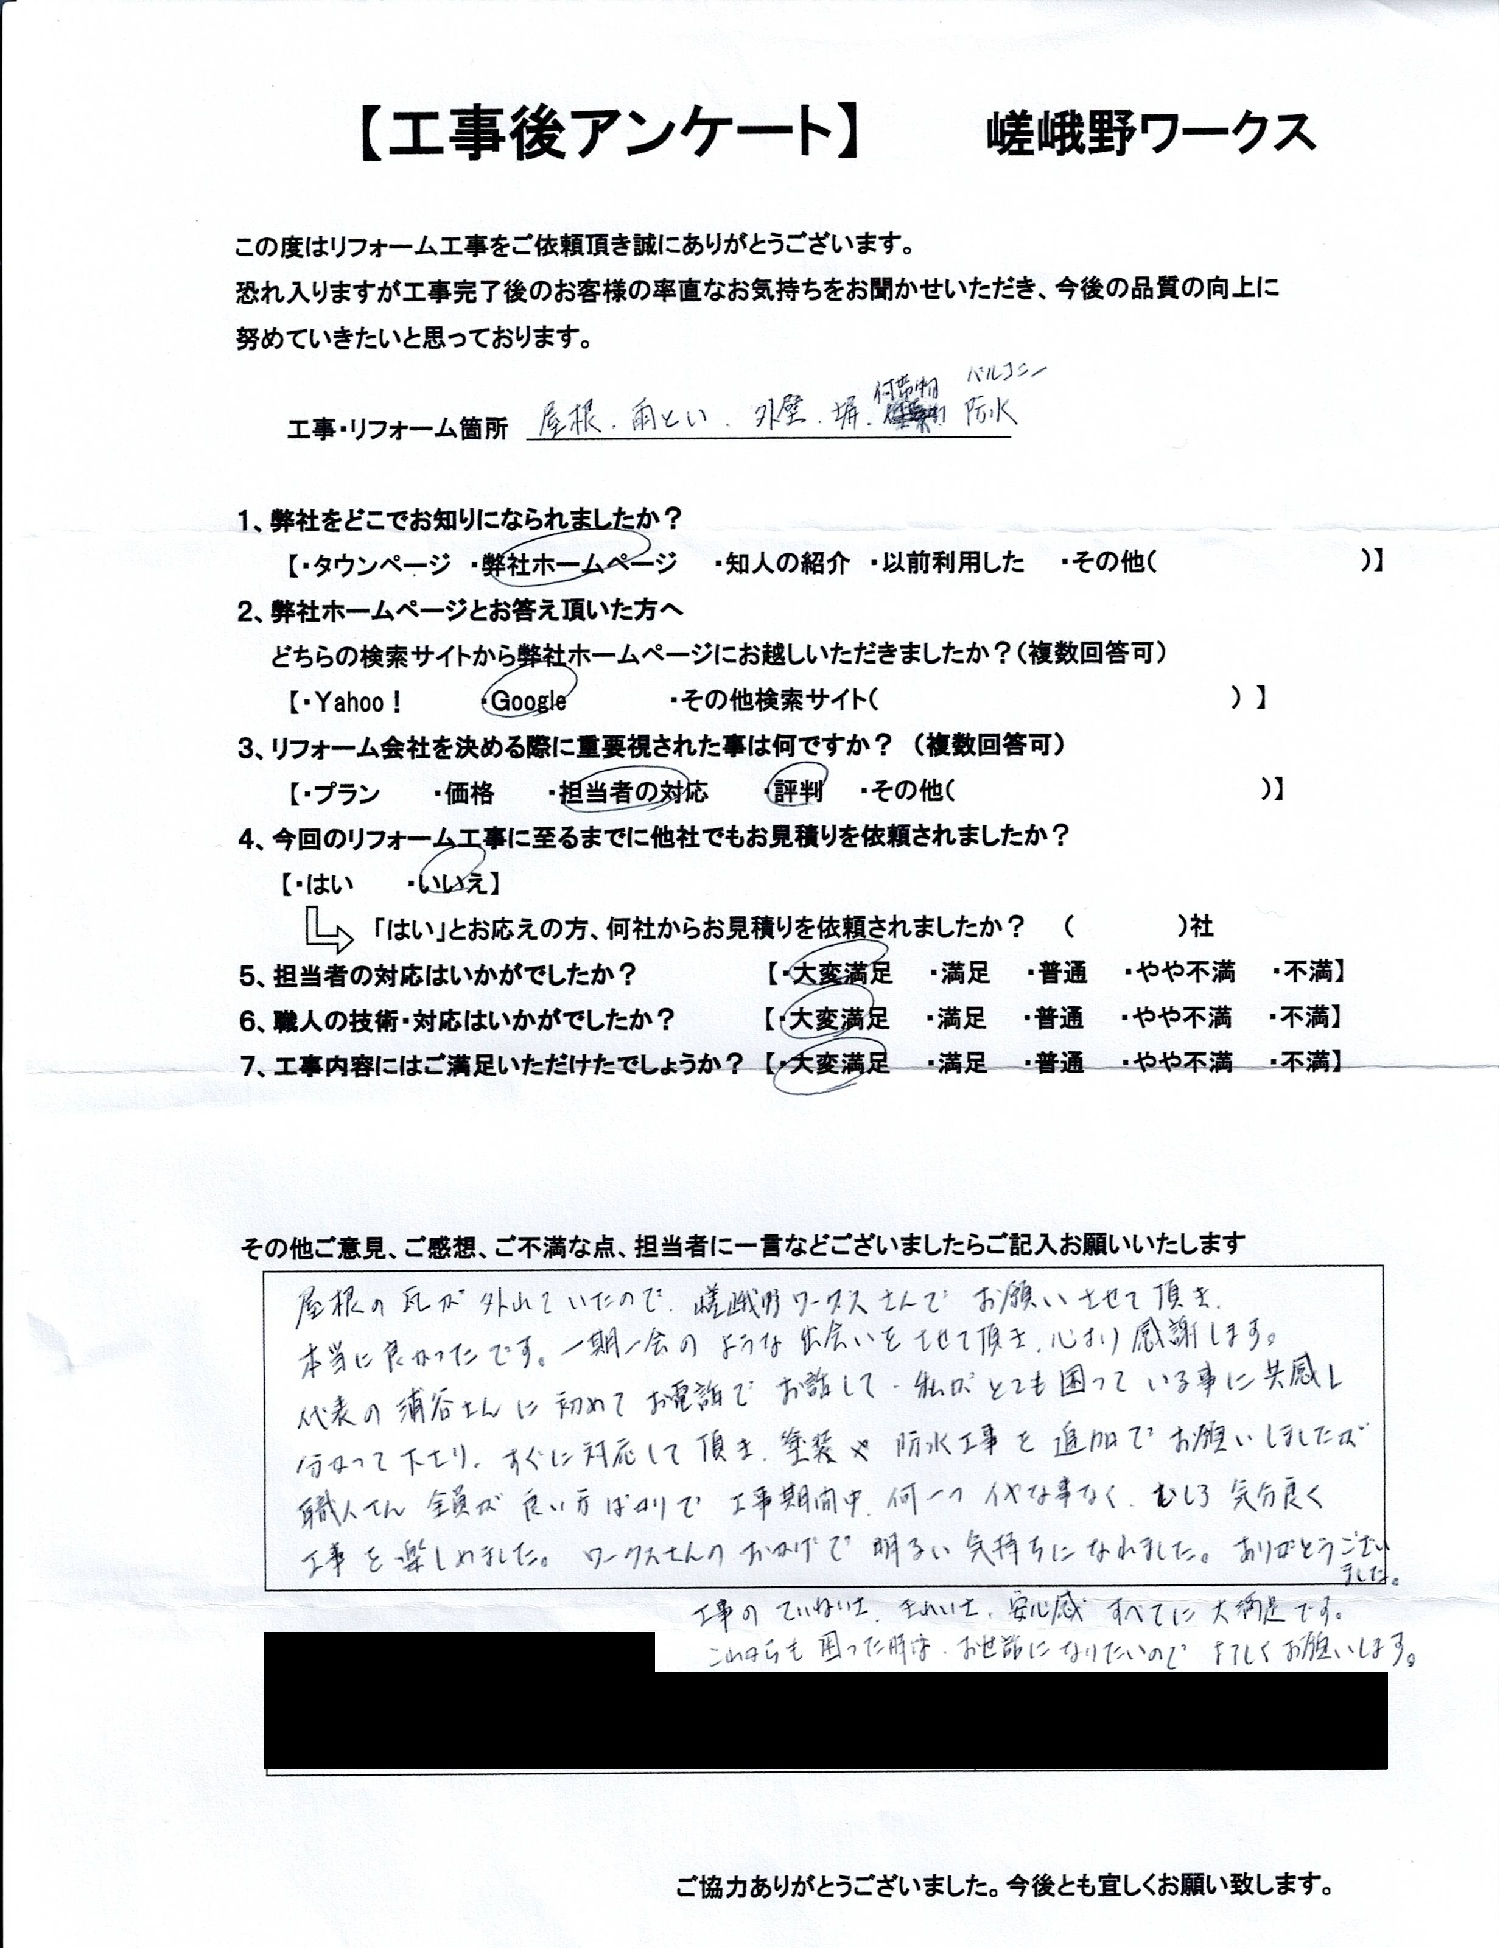 【工事後アンケート】 嵯峨野ワークス
この度はリフォーム工事をご依頼頂き誠にありがとうございます。
恐れ入りますが工事完了後のお客様の率直なお気持ちをお聞かせいただき、今後の品質の向上に
努めていきたいと思っております。
工事・リフォーム箇所 屋根.雨とい.外壁.塀.付帯物 バルコニー防水
1、弊社をどこでお知りになられましたか？
【・タウンページ ・弊社ホームページ ・知人の紹介 ・以前利用した ・その他( )】
2、弊社ホームページとお答え頂いた方へ
どちらの検索サイトから弊社ホームページにお越しいただきましたか？(複数回答可)
【・Yahoo！ ・Google ・その他検索サイト( ) 】
3、リフォーム会社を決める際に重要視された事は何ですか？ (複数回答可)
【・プラン ・価格 ・担当者の対応 ・評判 ・その他( )】
4、今回のリフォーム工事に至るまでに他社でもお見積りを依頼されましたか？
【・はい ・いいえ】
「はい」とお応えの方、何社からお見積りを依頼されましたか？ ( )社
5、担当者の対応はいかがでしたか？ 【・大変満足 ・満足 ・普通 ・やや不満 ・不満】
6、職人の技術・対応はいかがでしたか？ 【・大変満足 ・満足 ・普通 ・やや不満 ・不満】
7、工事内容にはご満足いただけたでしょうか？ 【・大変満足 ・満足 ・普通 ・やや不満 ・不満】
その他ご意見、ご感想、ご不満な点、担当者に一言などございましたらご記入お願いいたします
屋根の瓦が外れていたので、嵯峨野ワークスさんでお願いさせて頂き、
本当に良かったです。一期一会のような出会いをさせて頂き、心より感謝します。
代表の浦谷さんに初めてお電話でお話して、私がとても困っている事に共感し
分かって下さり、すぐに対応して頂き、塗装や防水工事を追加でお願いしましたが
職人さん全員が良い方ばかりで工事期間中、何一つイヤな事なく、むしろ気分良く
工事を楽しめました。ワークスさんのおかげで明るい気持ちになれました。ありがとうござい
ました。
工事のていねいさ、きれいさ、安心感すべてに大満足です。
これからも困った時は、お世話になりたいのでよろしくお願いします。
ご協力ありがとうございました。今後とも宜しくお願い致します。